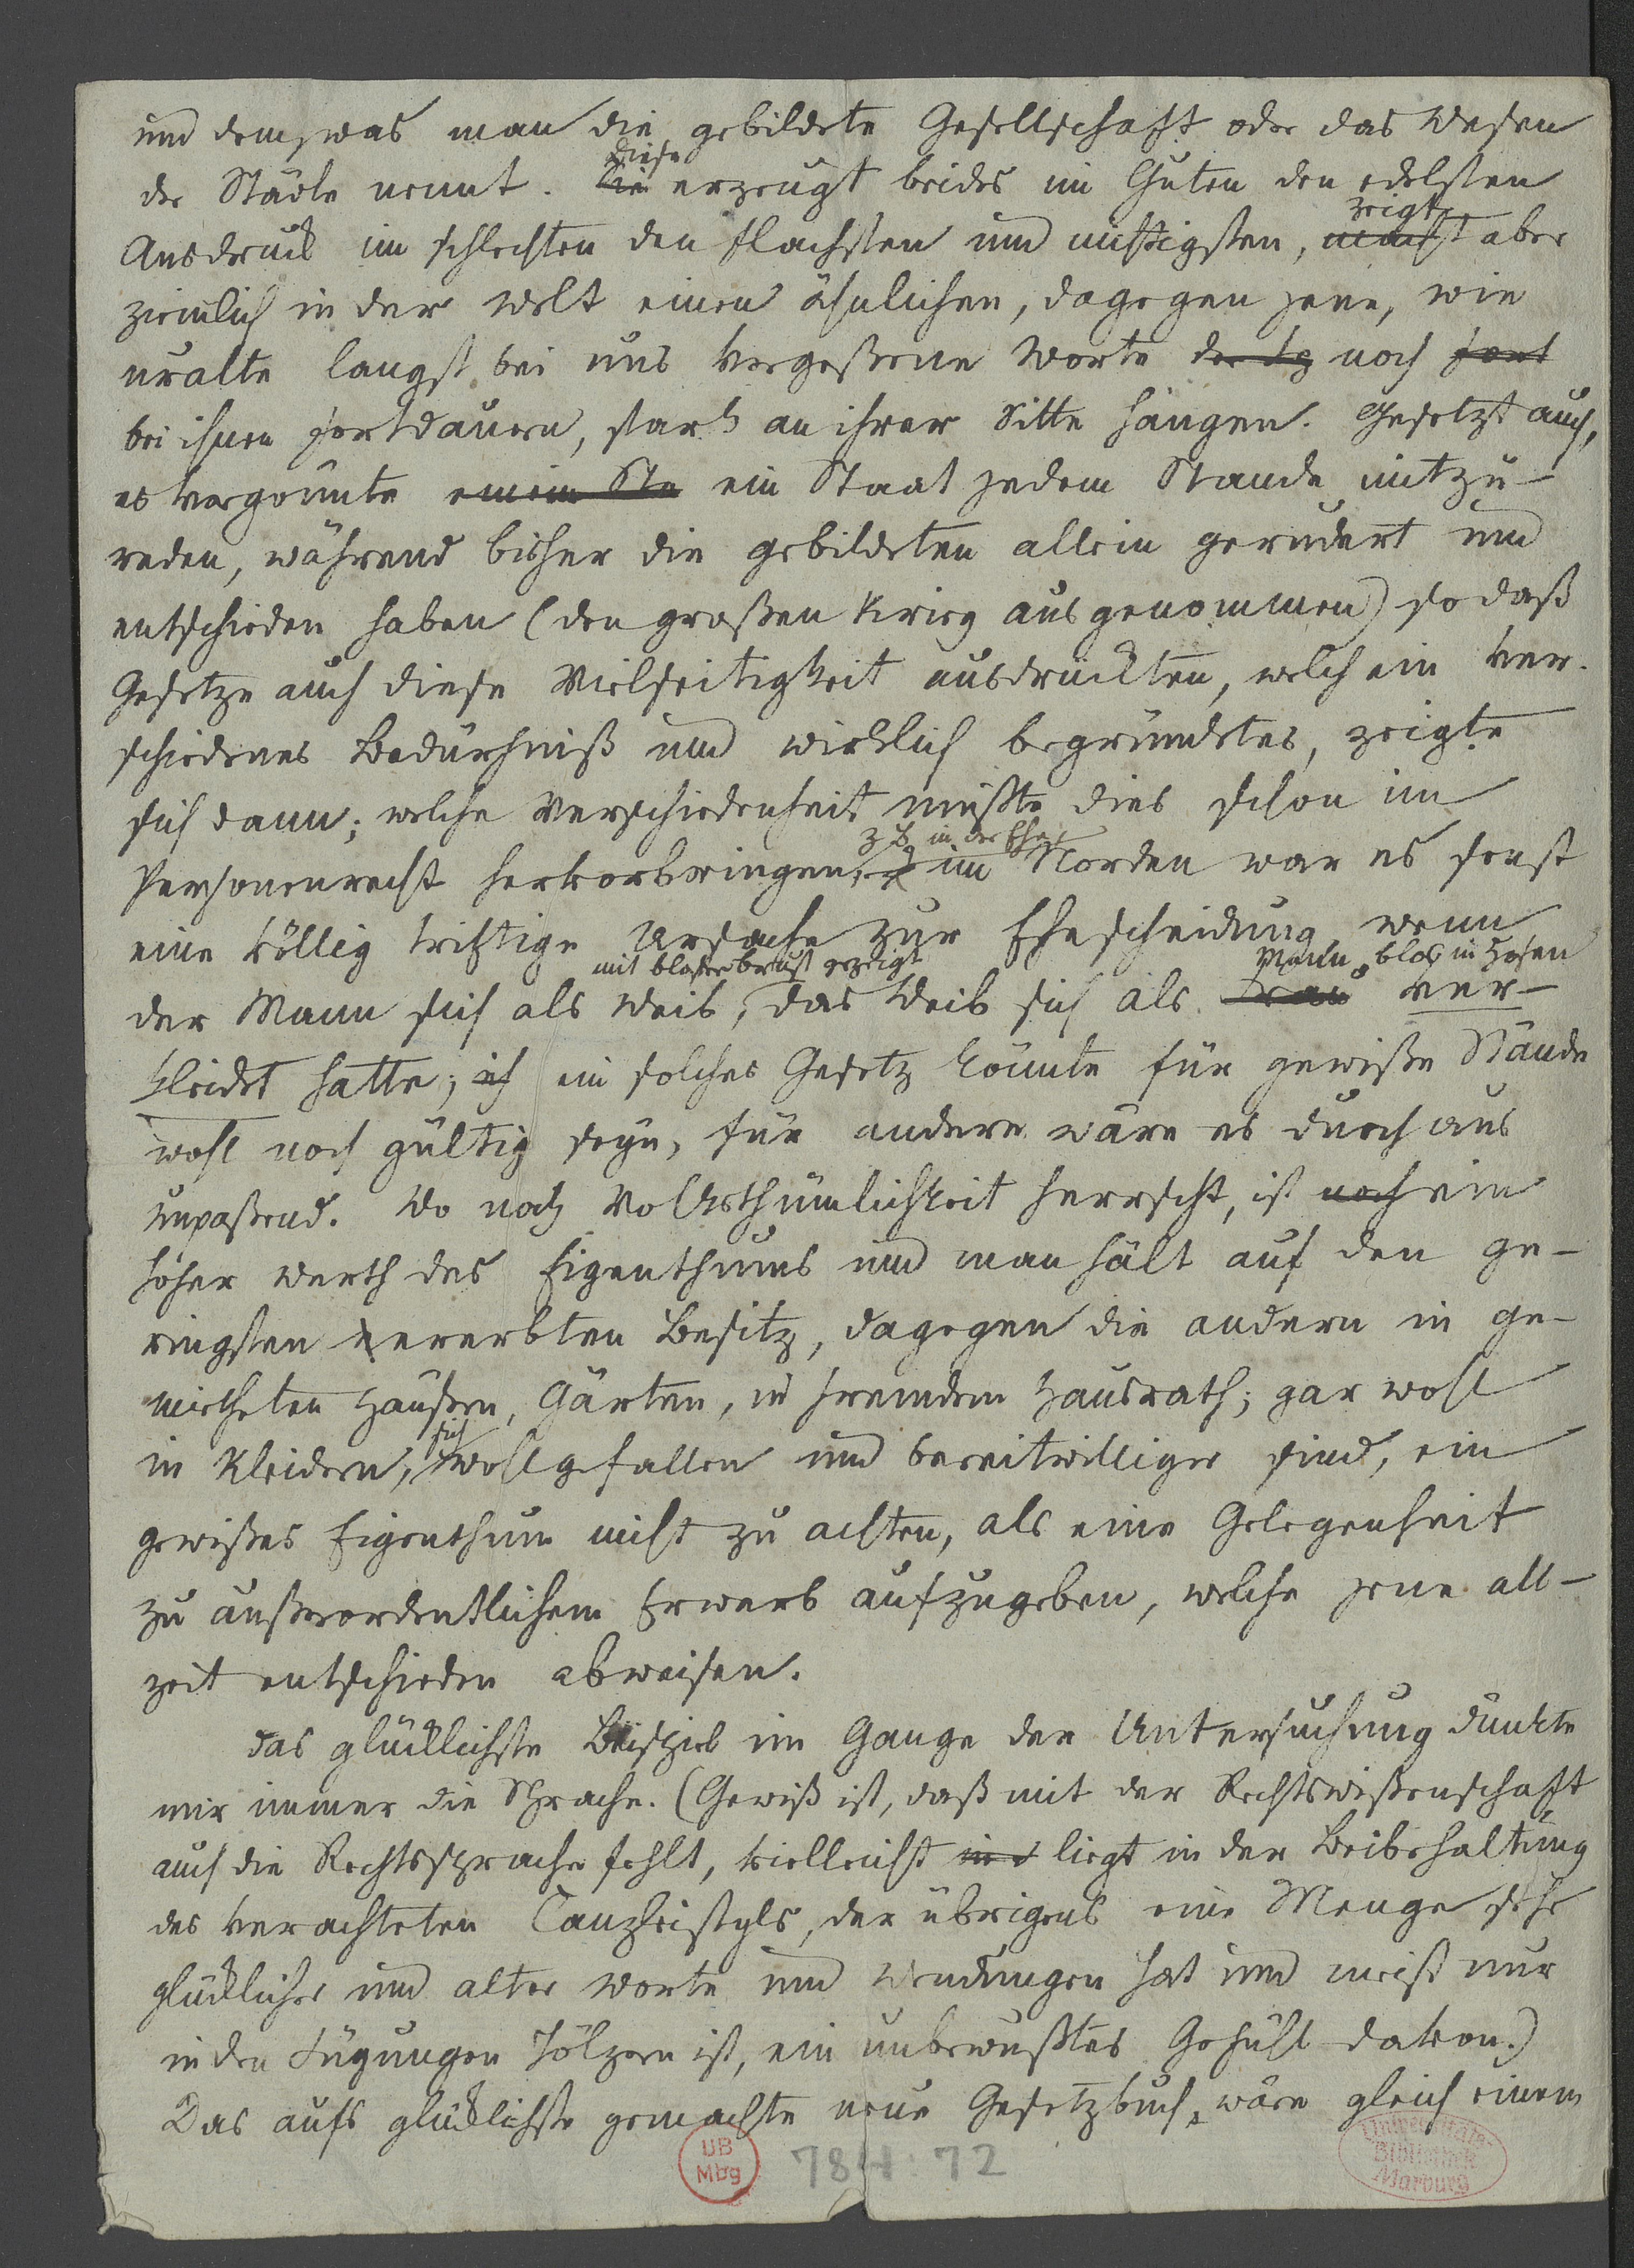 und dem, was man die gebildete Gesellschaft oder das Wesen
diese
der Städte nennt. die erzeugt beides im Guten den edelsten
zeigt
Ausdruck im schlechten den flachsten und nichtigsten, macht aber
ziemlich in der Welt einen ähnlichen, dagegen jene, wie
uralte langst bei uns vergeßene Worte der Sp noch fort
bei ihnen fortdauern, stark an ihrer Sitte hängen. Gesetzt auch,
es vergönnte einem Sta ein Staat jedem Stande mitzu-
reden, während bisher die gebildeten allein geredet und
entschieden haben (den großen Krieg ausgenommen) so daß
Gesetze auch diese Vielseitigkeit ausdrückten, welch ein ver-
schiedenes Bedürfniß und wirklich begründetes, zeigte
sich dann; welche Verschiedenheit müßte dies schon im
z.B. in der Ehe
Personenrecht hervorbringen, im Norden war es sonst
eine völlig triftige Ursache zur Ehescheidung, wenn
mit bloßer brust gezeigt Mann, blos in Hosen
der Mann sich als Weib, das Weib sich als Frau ver-
kleidet hatte; ich ein solches Gesetz könnte für gewiße Stände
wohl noch gültig seyn, für andere wäre es durchaus
unpaßend. Wo noch Volksthümlichkeit herrscht, ist noch ein
hoher Werth des Eigenthums und man hält auf den ge-
ringsten ererbten Besitz, dagegen die andern in ge-
mietheten Häußern, Gärten, in fremdem Hausrath; gar wohl
sich
in Kleidern, wohlgefallen und bereitwilliger sind, ein
gewißes Eigenthum nicht zu achten, als eine Gelegenheit
zu außerordentlichem Erwerb aufzugeben, welche jene all-
zeit entschieden abweisen.
Das glücklichste Beispiel im Gange der Untersuchung dünkte
mir immer die Sprache. (Gewiß ist, daß mit der Rechtswißenschaft
auch die Rechtssprache fehlt, vielleicht ist liegt in der Beibehaltung
des verachteten Canzleistyls, der übrigens eine Menge sehr
glücklicher und alter Worte und Wendungen hat und meist nur
in den Fügungen hölzern ist, ein unbewußtes Gefühl davon.)
Das aufs glücklichste gemachte neue Gesetzbuch, wäre gleich einem
UB
Mbg
784:72
Universitäts-
Bibliothek
Marburg